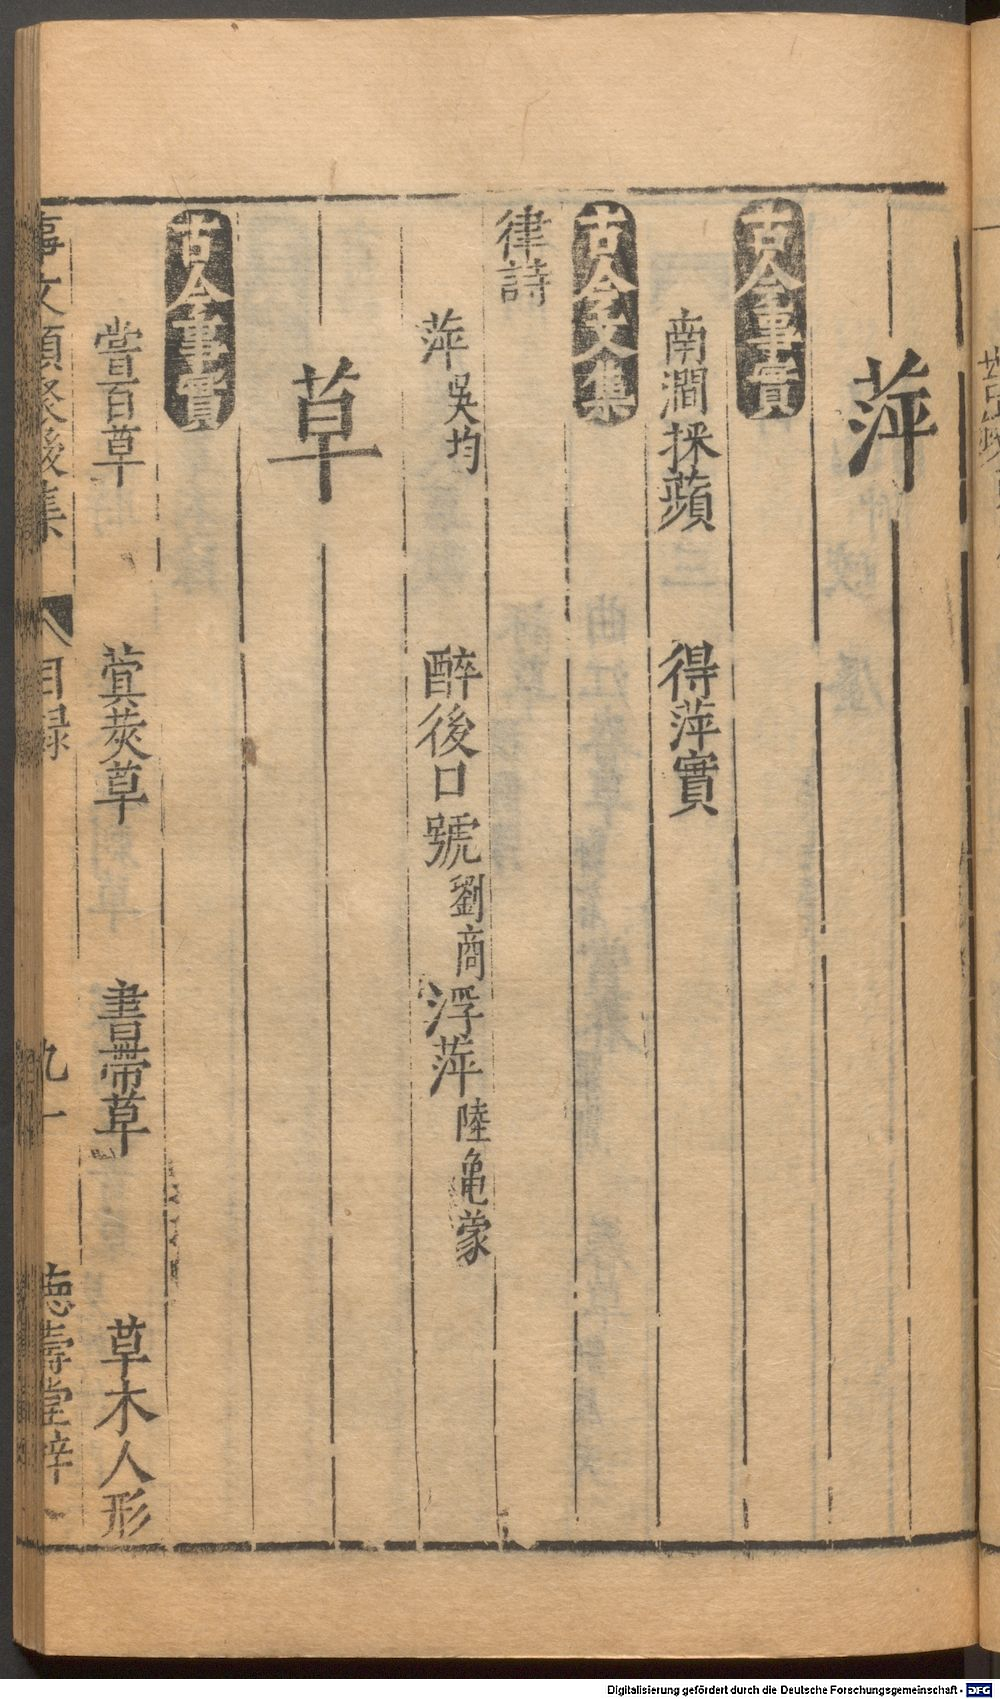 萍
古今事實
南澗採蘋 得萍實
古今文集
律詩
萍 吳均 醉後口號 劉商 浮萍 陸亀蒙
草
古今事實
嘗百草 蓂莢草 書帶草 草木人形
事文類聚後集 目録 九一 德壽堂梓
Digitalisierung gefördert durch die Deutsche Forschungsgemeinschaft - DFG